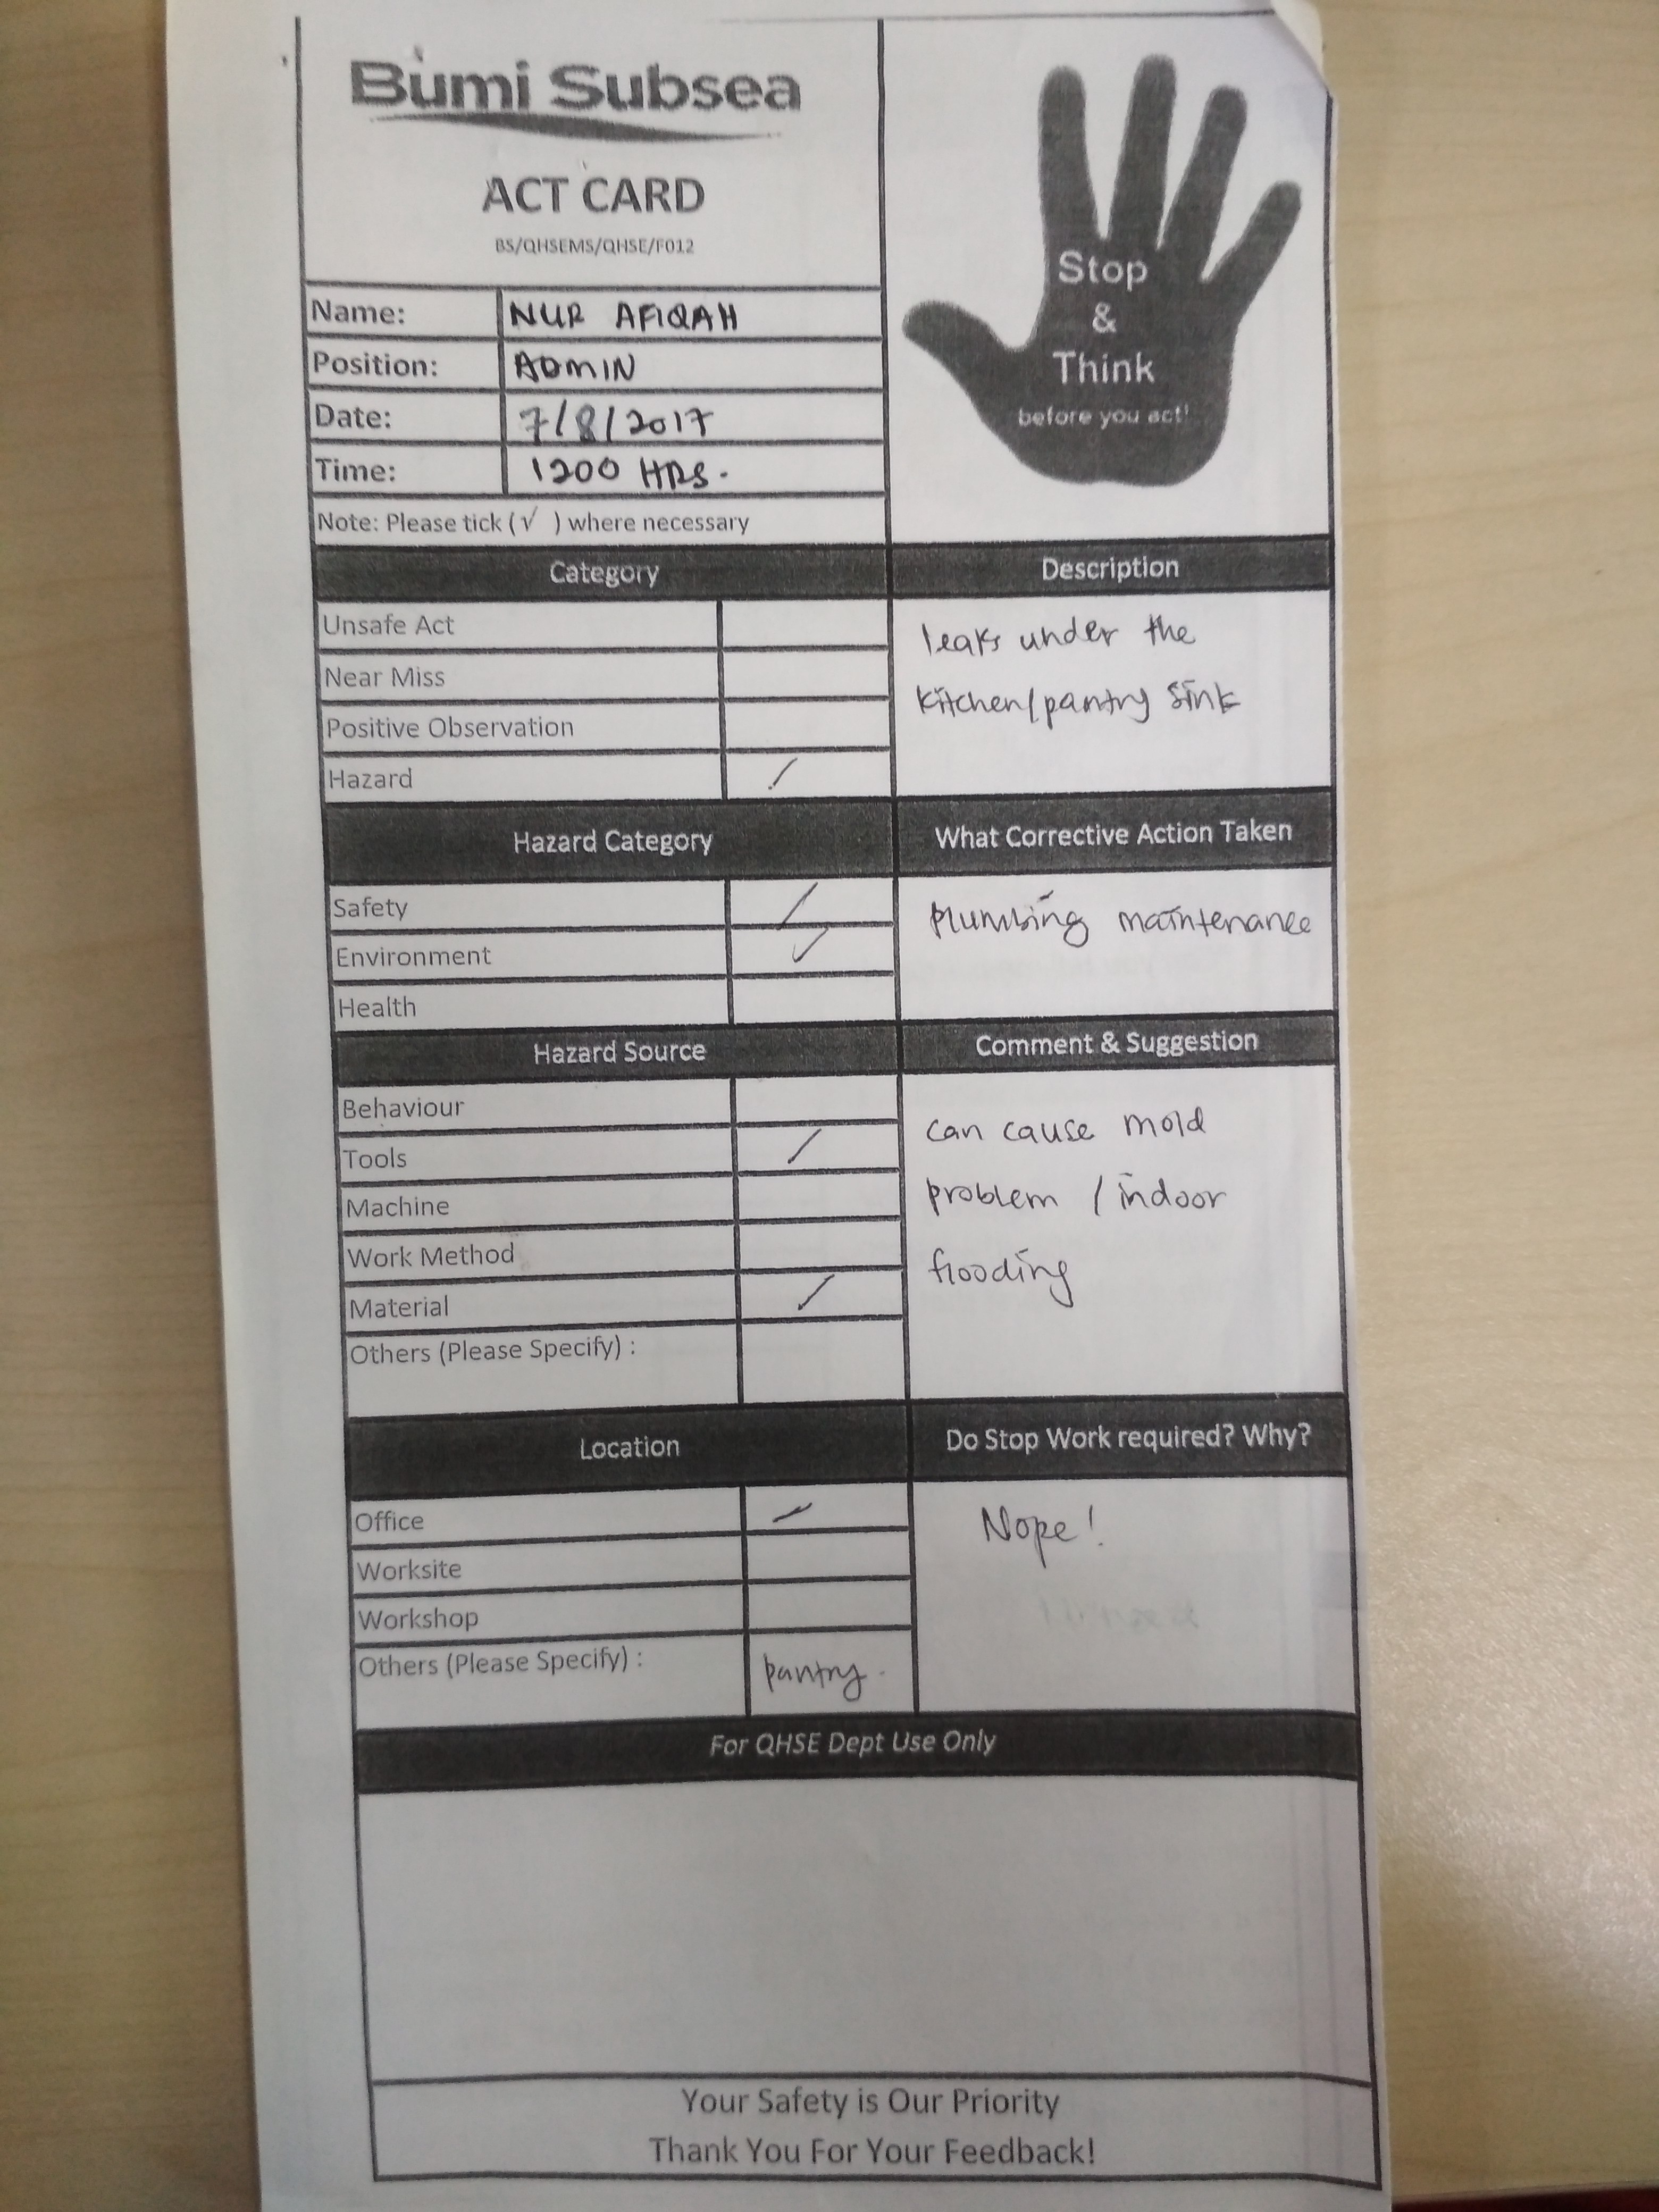 Bumi Subsea
ACT CARD
BS/QHSEMS/QHSE/F012
Stop
&
Think
before you act!
Name: NUR AFIQAH
Position: ADMIN
Date: 7/8/2017
Time: 1200 HRS.
Note: Please tick (√ ) where necessary
Category
Unsafe Act
Near Miss
Positive Observation
Hazard /
Description
leaks under the
kitchen/pantry sink
Hazard Category
Safety /
Environment ✓
Health
What Corrective Action Taken
Plumbing maintenance
Hazard Source
Behaviour
Tools /
Machine
Work Method
Material /
Others (Please Specify) :
Comment & Suggestion
can cause mold
problem / indoor
flooding
Location
Office /
Worksite
Workshop
Others (Please Specify) : pantry.
Do Stop Work required? Why?
Nope!
For QHSE Dept Use Only
Your Safety is Our Priority
Thank You For Your Feedback!